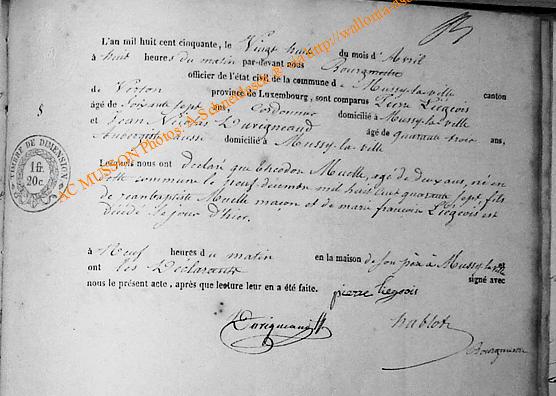 L'an mil huit cent cinquante, le Vingt huit du mois d'Avril
à huit heures du matin par-devant nous Bourgmestre
officier de l'état civil de la commune de Mussy-la-ville canton
de Virton province de Luxembourg, sont comparus Pierre Liégeois
âgé de soixante sept ans Cordonnier domicilié à Mussy-la-ville
et Jean Nicolas Durigneaud âgé de quarante trois ans,
Aubergiste aussi domicilié à Mussy-la-ville
Lesquels nous ont déclaré que theodore Muelle, agé de deux ans, né en
cette commune le neuf décembre mil huit cent quarante sept fils
de jeanbaptiste Muelle maçon et de marie françoise Liégeois est
décédé le jour d'hier.
à Neuf heures du matin en la maison de son père à Mussy-la-ville et
ont les Déclarants signé avec
nous le présent acte, après que lecture leur en a été faite.
pierre liegeois
Durigneaud
hablot
Bourgmestre
8
TIMBRE DE DIMENSION
1 fl.
20 c.
AC MUSSON Photos: A. Schneider
http://wallonia-asb